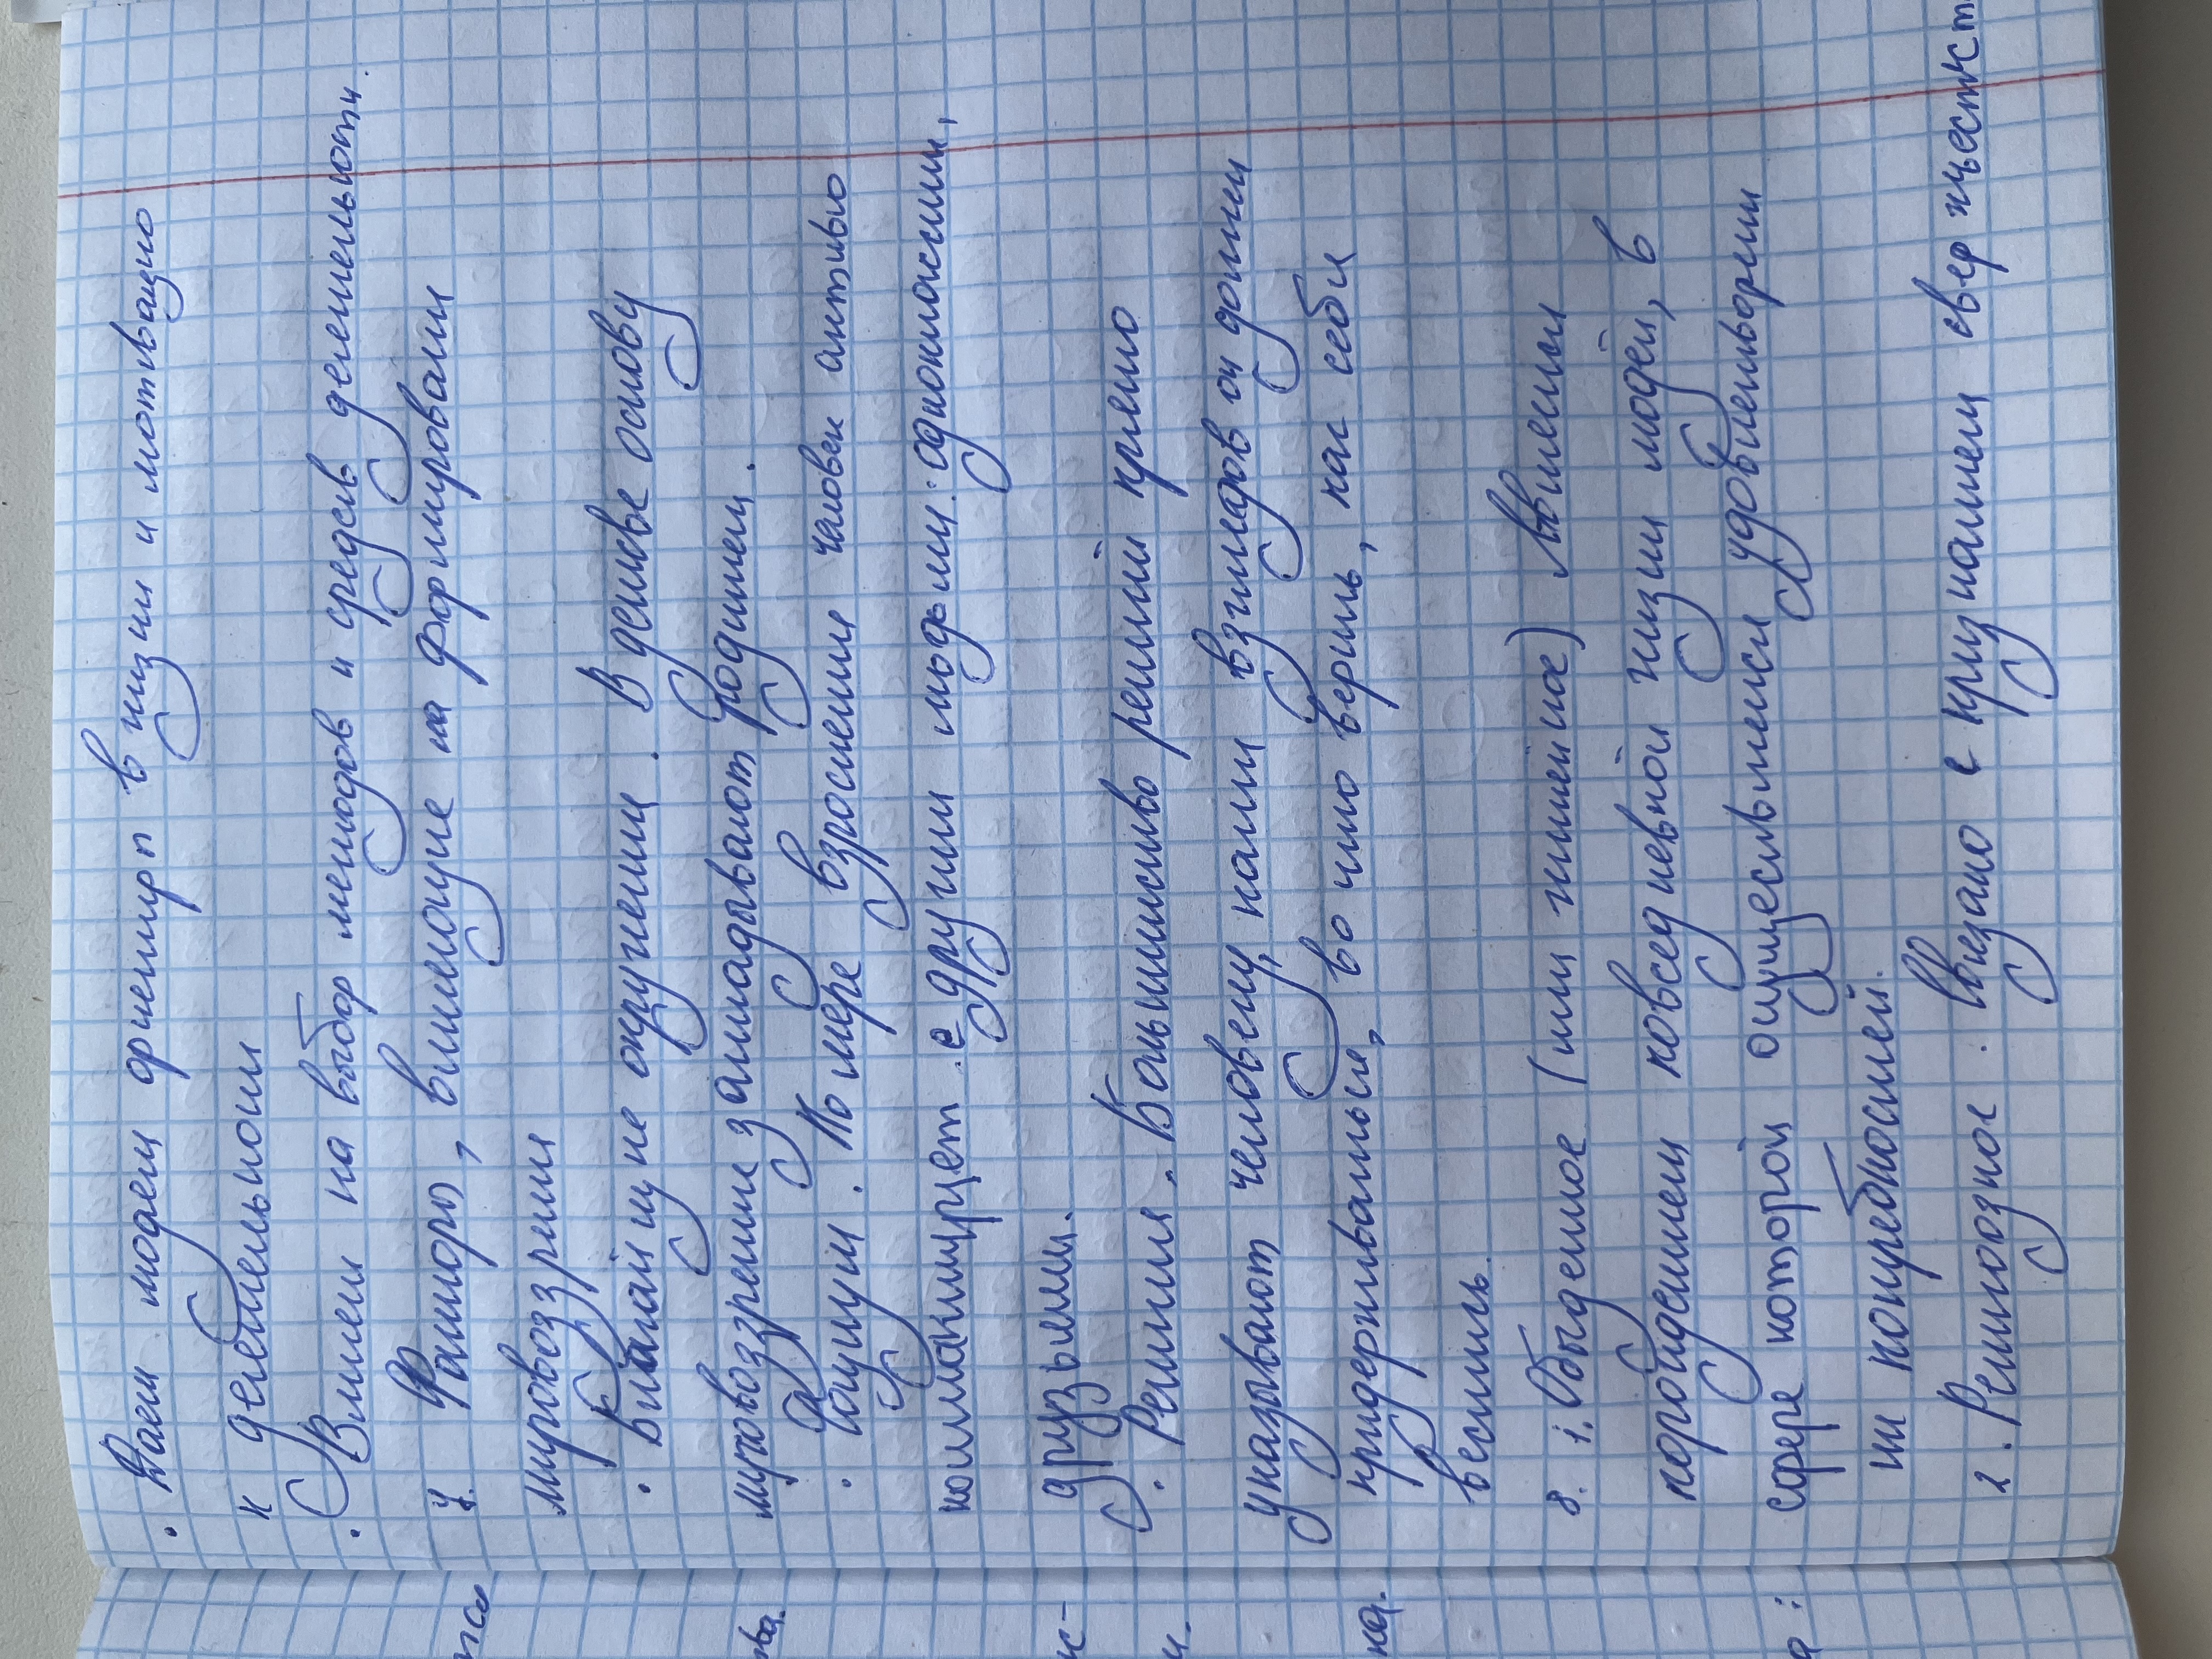 • Даем людям ориентир в жизни и мотивацию
к деятельности
• Влияет на выбор методов и средств деятельности.
7. Факторы, влияющие на формирование
мировоззрения
• Ближайшее окружение. В детстве основу
мировоззрения закладывают родители.
• Социум. По мере взросления человек активно
коммуницирует с другими людьми: одноклассники,
друзьями.
• Религия. Большинство религий прямо
указывают человеку, каких взглядов он должен
придерживаться, во что верить, как себя
вести.
8. 1. Обыденное (или житейское) является
порождением повседневной жизни людей, в
сфере которой осуществляется удовлетворение
их потребностей.
2. Религиозное. Связано с признанием сверхъестест